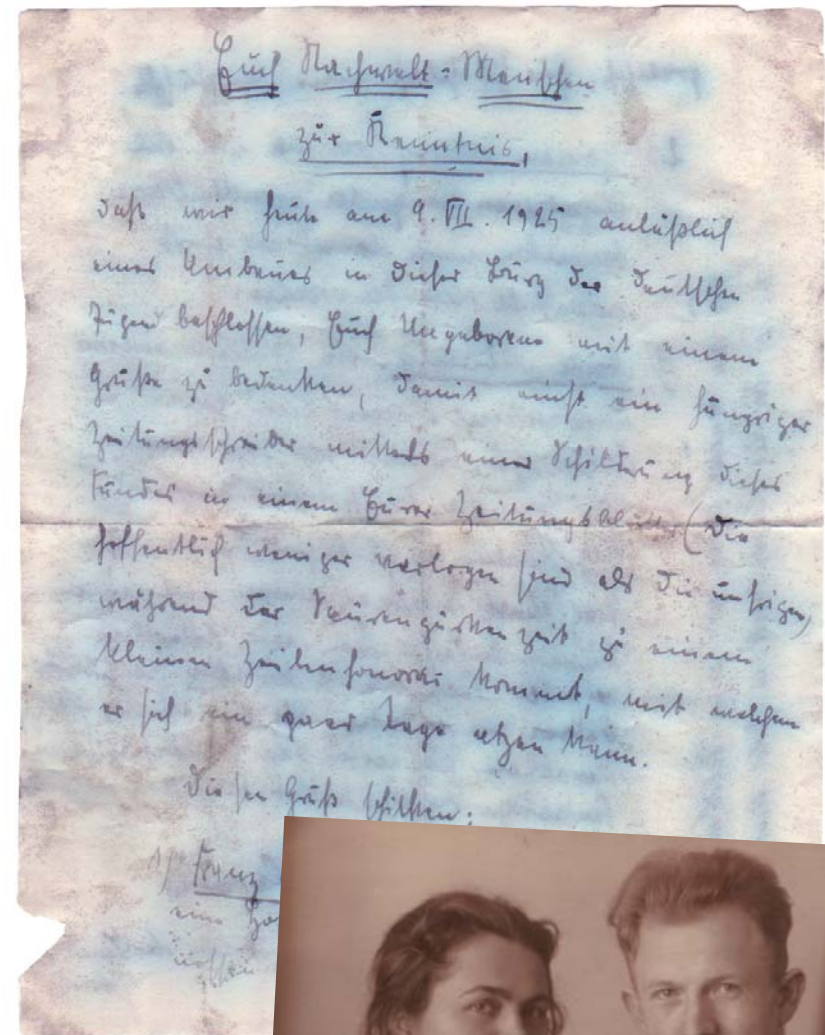 Euch Nachwelt-Menschen
zur Kenntnis,
daß wir heute am 9. VII. 1925 anläßlich
eines Umbaues in dieser Burg der deutschen
Jugend beschlossen, Euch Ungeborene mit einem
Gruße zu bedenken, damit einst ein hungriger
Zeitungsschreiber mittels einer Schilderung dieses
Fundes in einem Eurer Zeitungsblätter (die
hoffentlich weniger verlogen sind als die unsrigen)
während der Saurengurkenzeit zu einem
kleinen Zeilenhonorar kommt, mit welchem
er sich ein paar Tage atzen kann.
Diesen Gruß schicken:
Franz